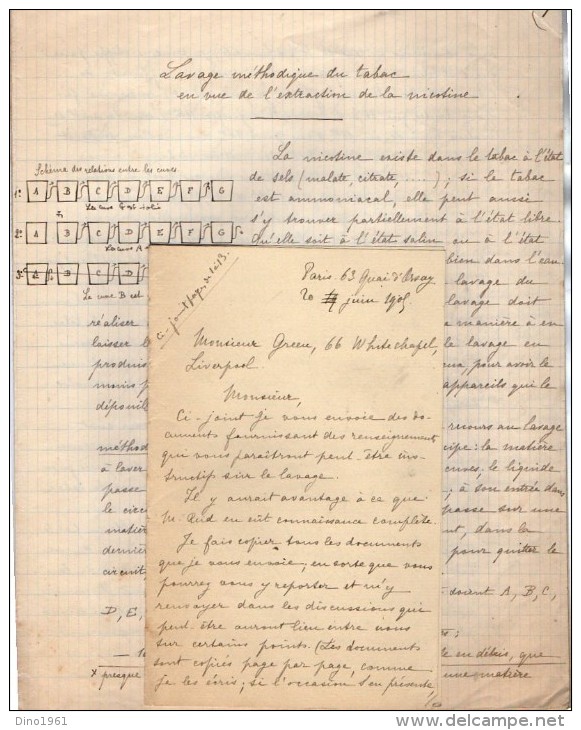 Lavage méthodique du tabac
en vue de l'extraction de la nicotine
Schéma des relations entre les cuves.
1° A B C D E F G
2° A B C D E
La cuve A
3° A B C D
La cuve B est
La nicotine existe dans le tabac à l'état
de sels (malate, citrate, ....); si le tabac
est ammoniacal, elle peut aussi
s'y trouver partiellement à l'état libre
Qu'elle soit à l'état salin ou à l'état
bien dans l'eau.
lavage du
réaliser
lavage doit
laisser
manière à en
produi
le lavage en
moins
pour avoir le
appareils qui le
recours au lavage
méthod
la matière
à laver
cuves, le liquide
passe
; à son entrée dans
le cir
passe sur une
matiè
dans la
dernier
pour quitter le
circuit,
soient A, B, C,
D, E,
en débris, que
x presque
une matière
Ci-joint pages de 1 à 13.
Paris 63 Quai d'Orsay
20 juin 1905
Monsieur Green, 66 Whitechapel,
Liverpool.
Monsieur,
Ci-joint je vous envoie des do-
cuments fournissant des renseignements
qui vous paraîtront peut-être ins-
tructifs sur le lavage.
Il y aurait avantage à ce que
en eût connaissance complète.
Je fais copier tous les documents
que je vous envoie, en sorte que vous
pourrez vous y reporter et m'y
renvoyer dans les discussions qui
peut-être auront lieu entre nous
sur certains points. (Les documents
sont copiés page par page, comme
je les écris; si l'occasion s'en présente,
Dino1961
delcampe.net